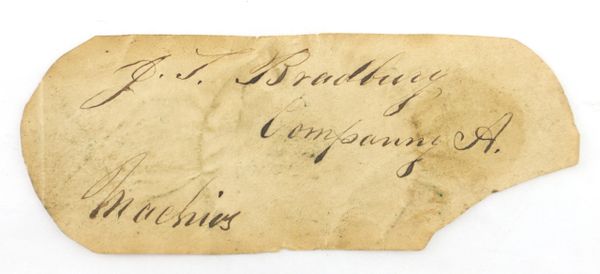 J. T. Bradbury
Companny A.
Machias